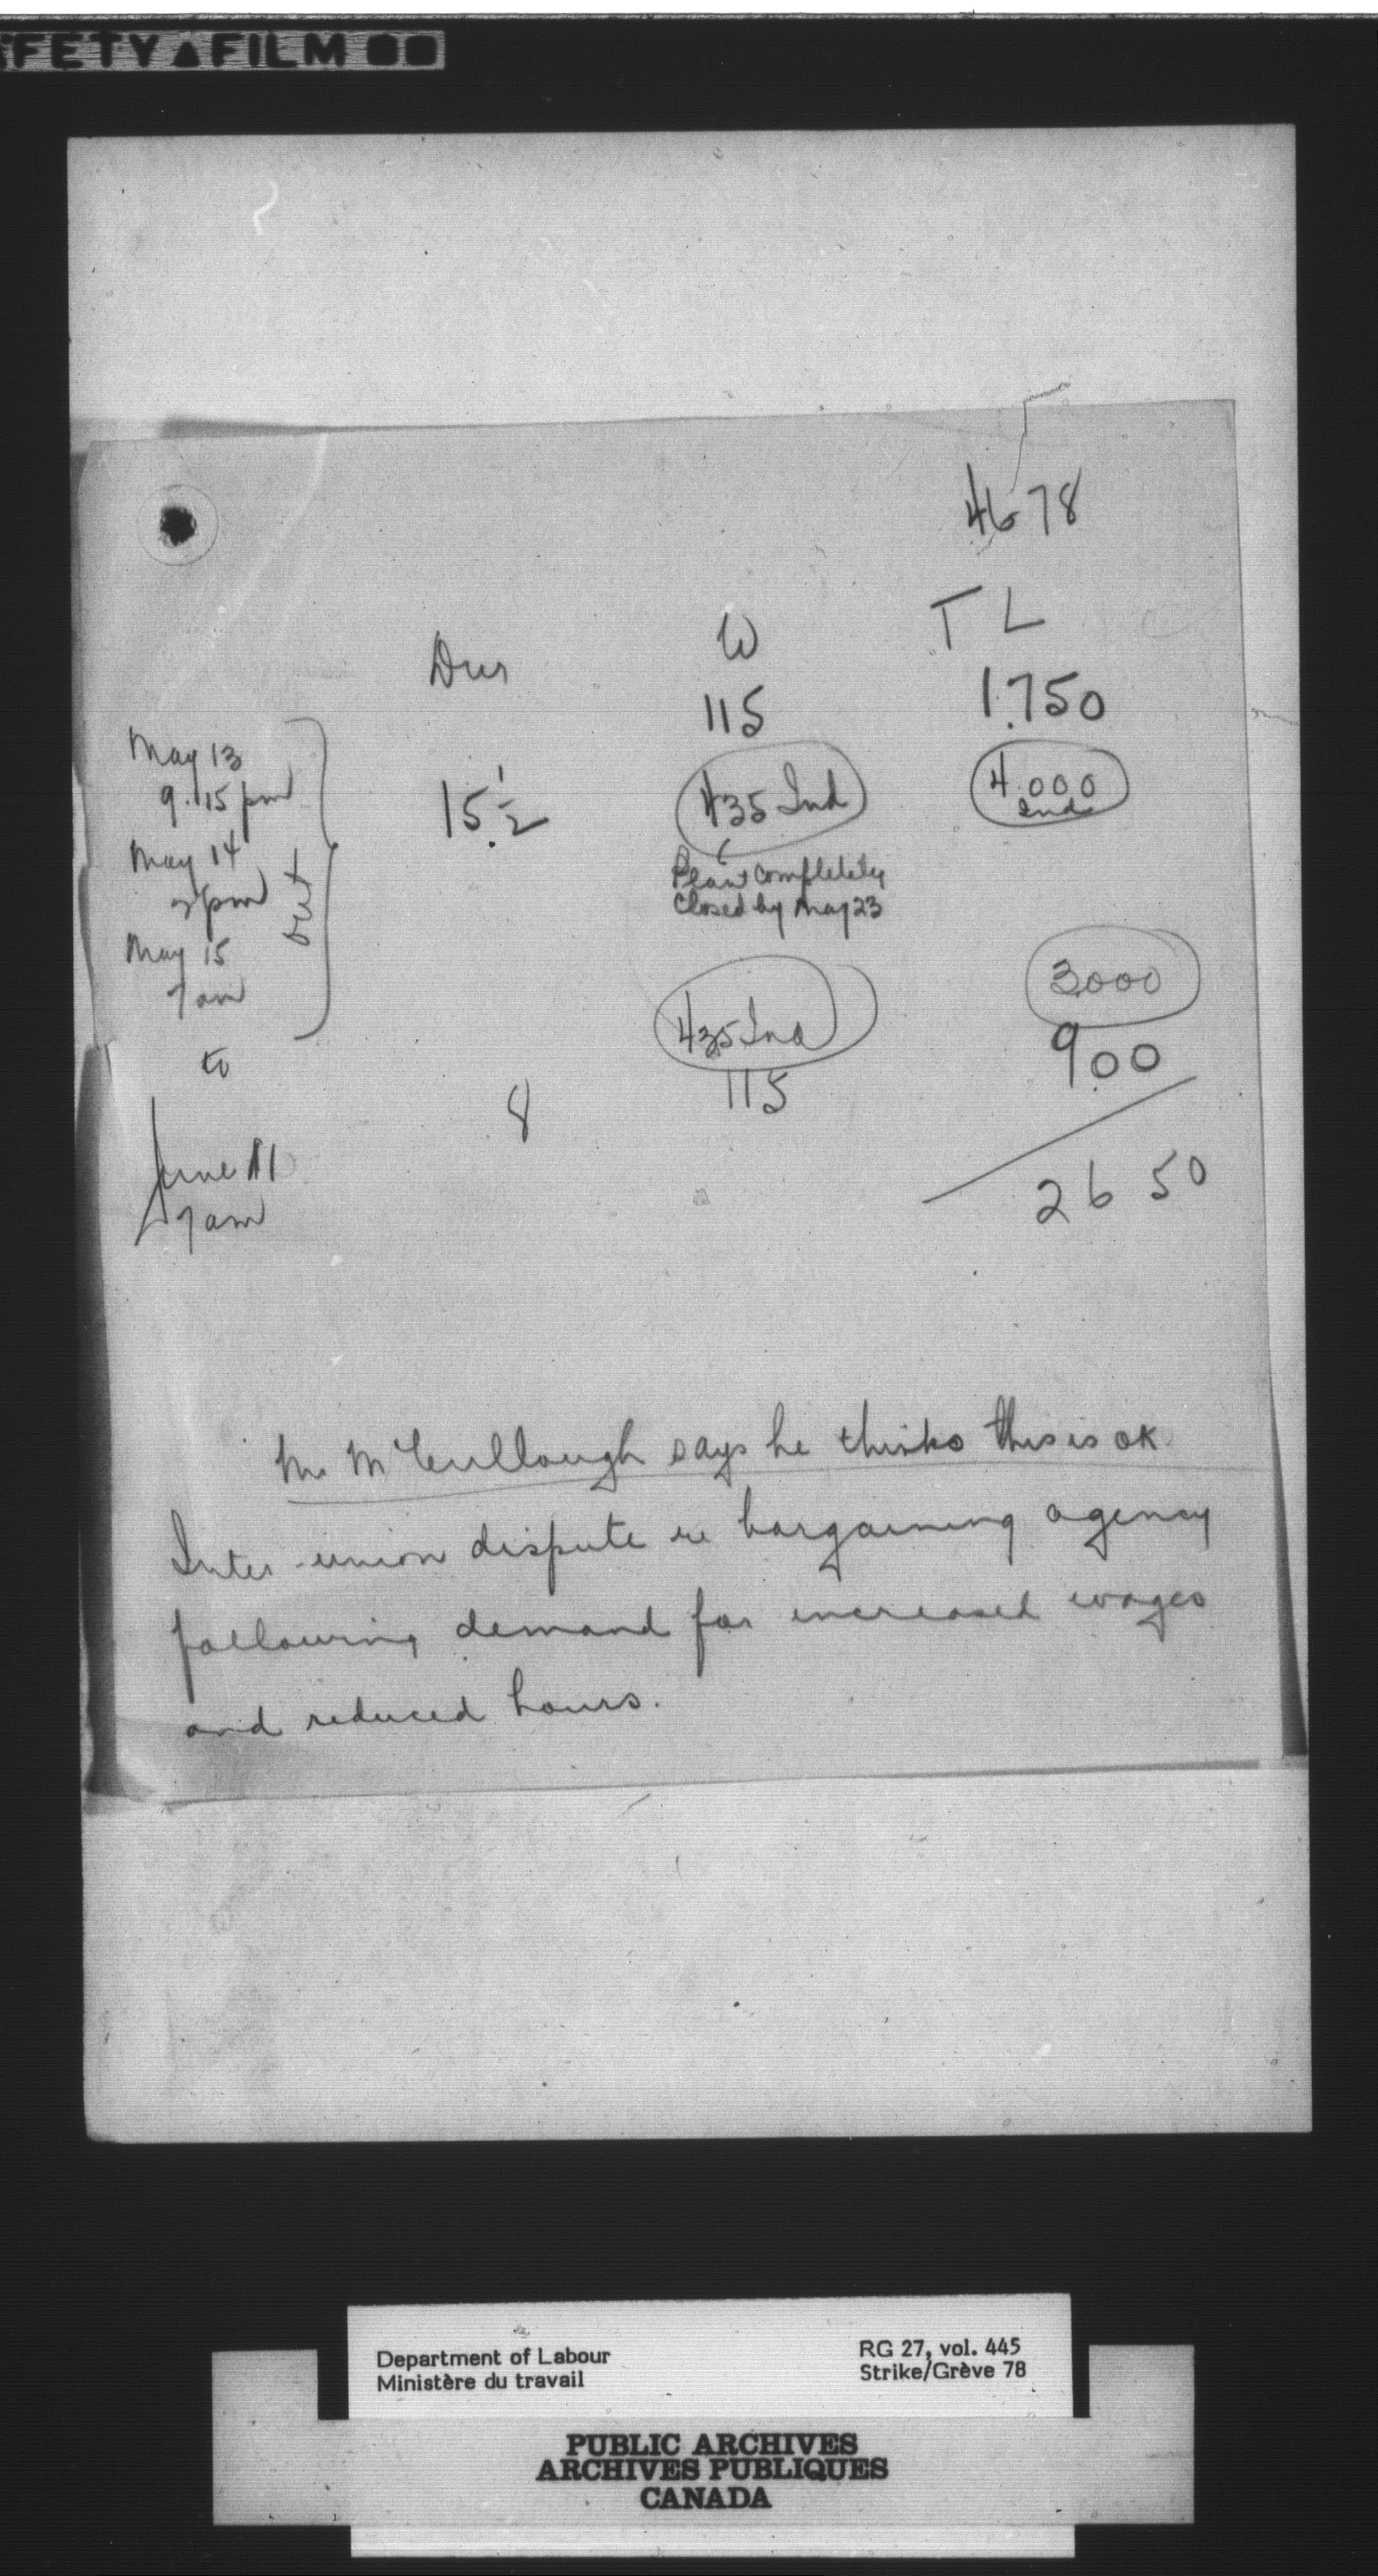 SAFETY▲FILM ●●
4678
Dur W T L
115 1.750
May 13
9.15 pm
15 1/2 435 Ind 4.000
Ind
May 14
pm
Plant completely
closed by May 23
out
May 15
7 am
435 Ind 3000
to
8 115 900
June 11
7 am
2650
Mr McCullough says he thinks this is ok
Inter-union dispute re bargaining agency
following demand for increased wages
and reduced hours.
Department of Labour
Ministère du travail
RG 27, vol. 445
Strike/Grève 78
PUBLIC ARCHIVES
ARCHIVES PUBLIQUES
CANADA